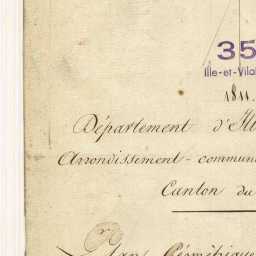 35
Ille-et-Vilai
1811.
Département d'Ill
Arrondissement-commun
Canton du
Plan Géométrique